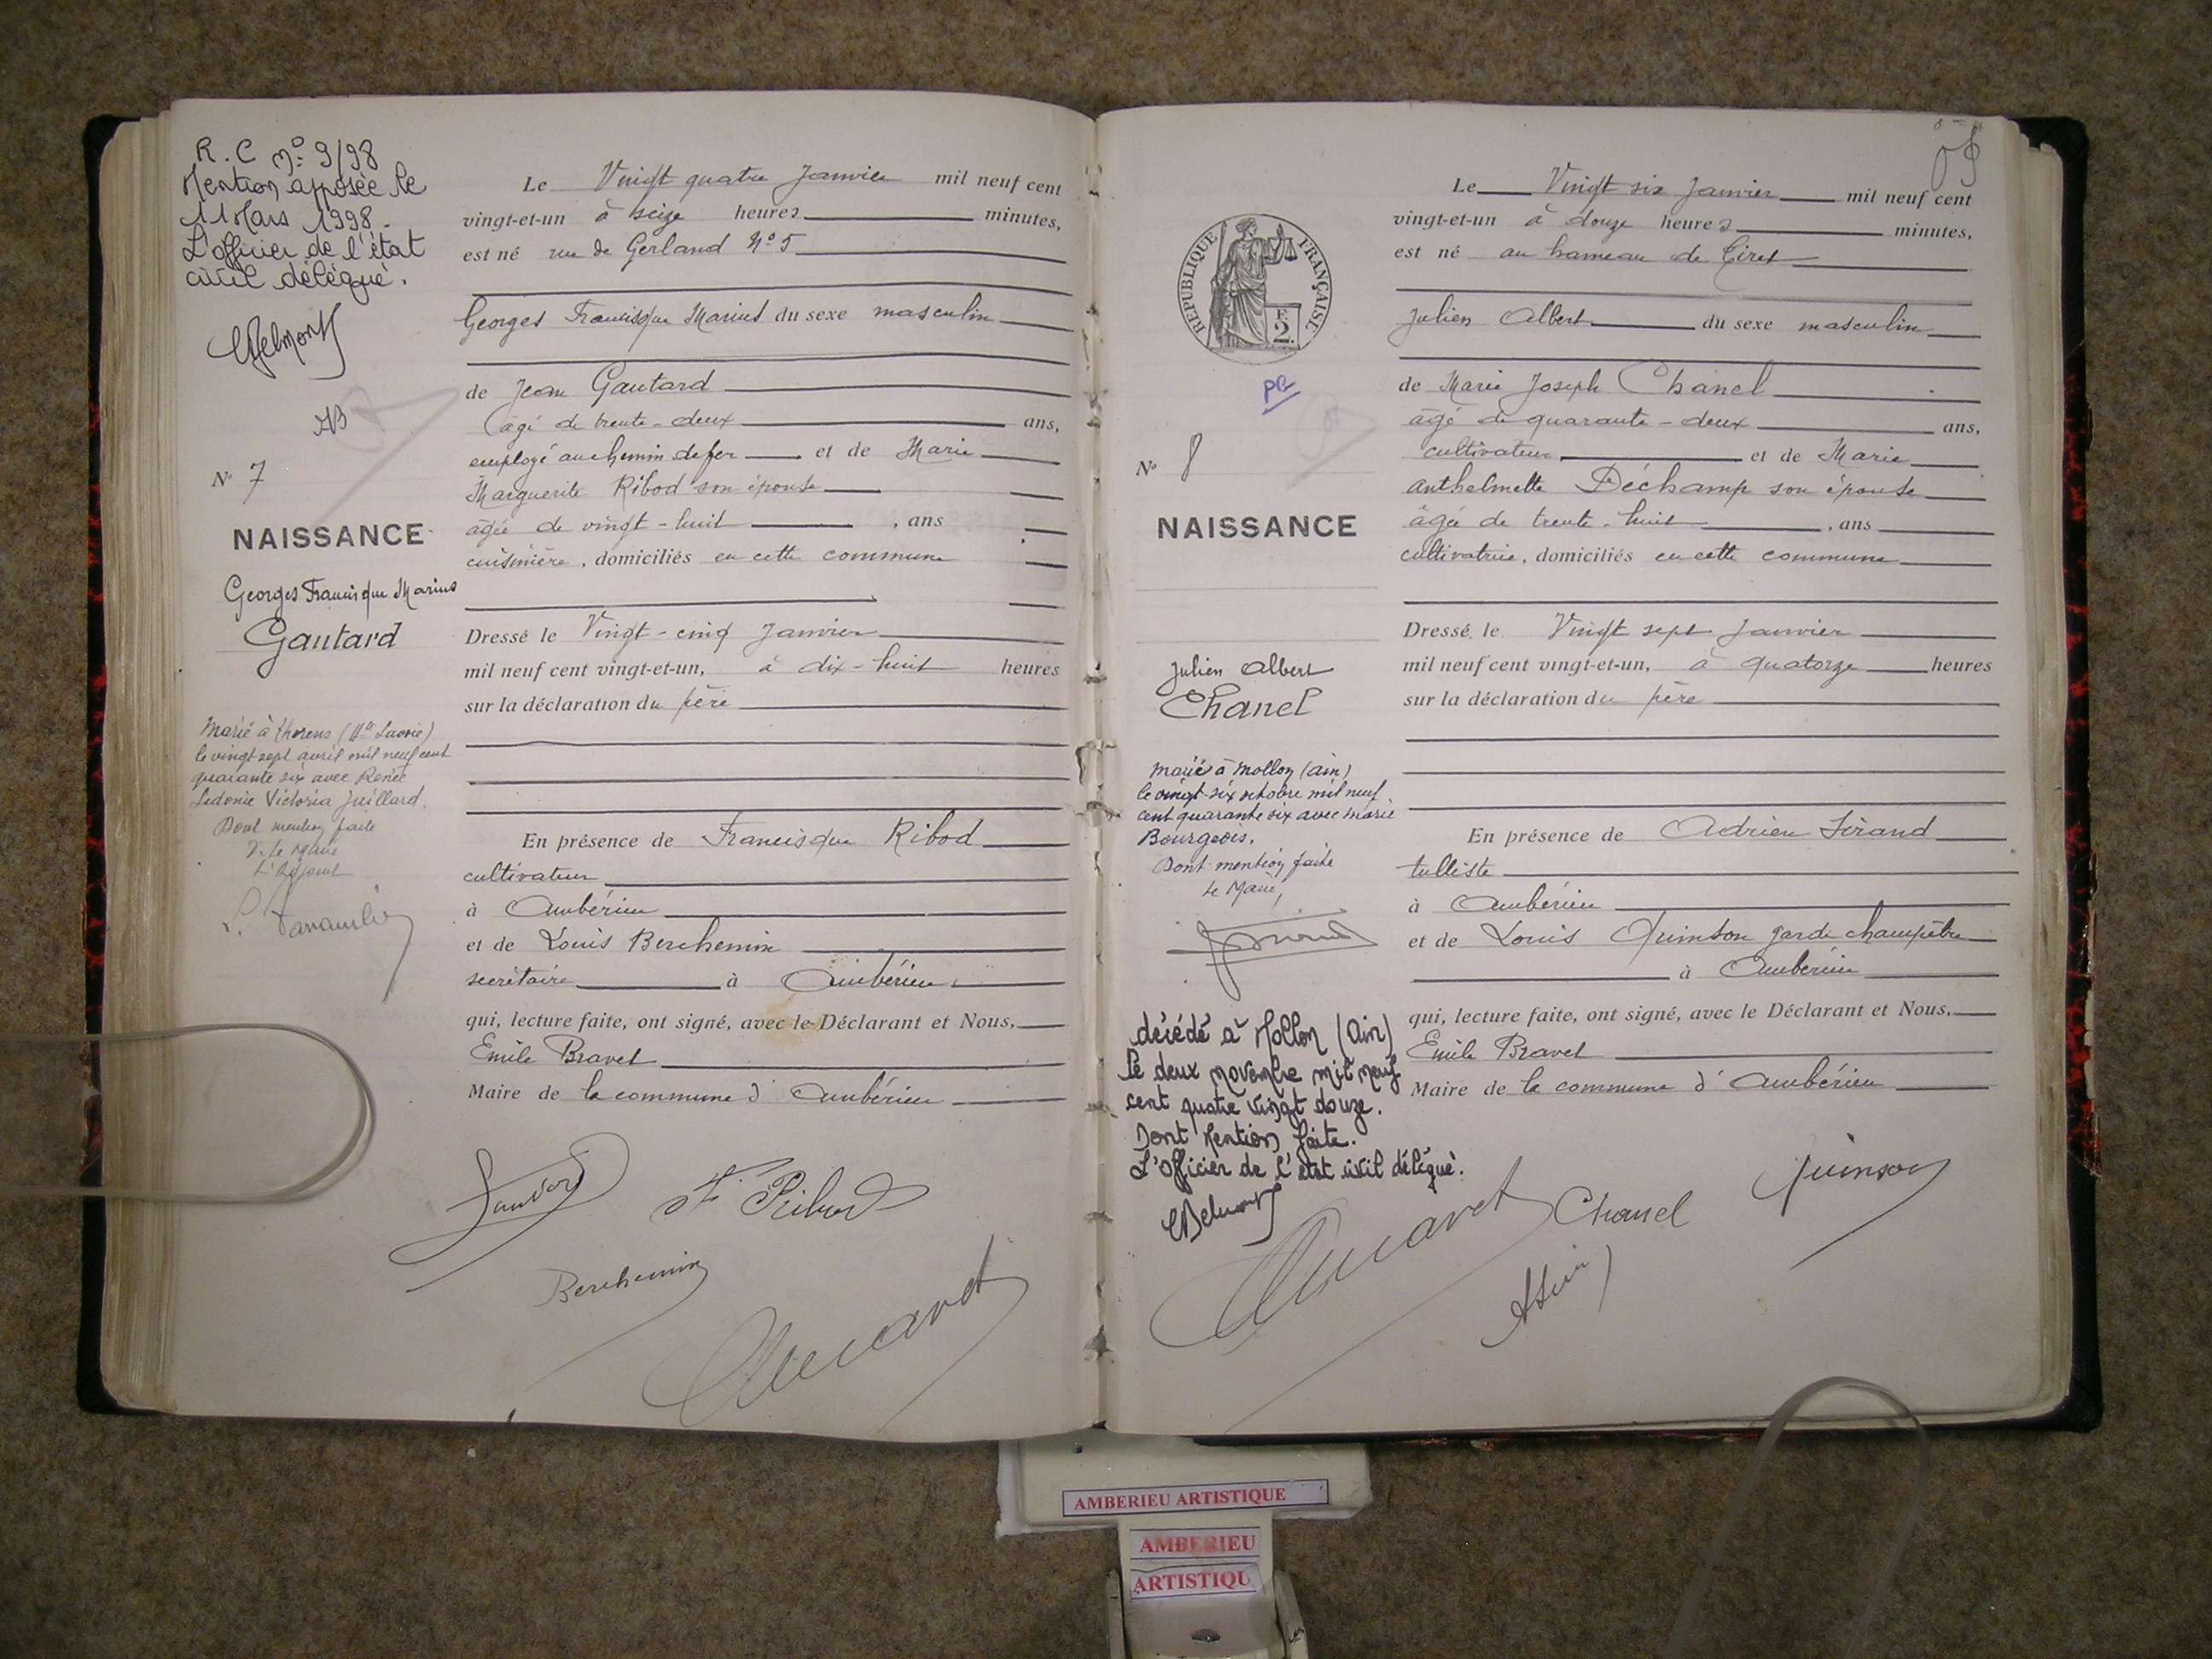 R.C n° 9/98
Mention apposée le
11 Mars 1998.
L'officier de l'état
civil délégué.
CBelmont
N° 7
NAISSANCE
Georges Francisque Marius
Gautard
Marié à Thorens (Hte Savoie)
le vingt sept avril mil neuf cent
quarante six avec Renée
Sidonie Victoria Juillard.
Dont mention faite
P. le Maire
L'Adjoint
Le Vingt quatre Janvier mil neuf cent
vingt-et-un à seize heures minutes,
est né rue de Gerland N° 5
Georges Francisque Marius du sexe masculin
de Jean Gautard
âgé de trente-deux ans,
employé au chemin de fer et de Marie
Marguerite Ribod son épouse
âgée de vingt-huit, ans
cuisinière, domiciliés en cette commune
Dressé le Vingt-cinq Janvier
mil neuf cent vingt-et-un, à dix-huit heures
sur la déclaration du père
En présence de Francisque Ribod
cultivateur
à Ambérieu
et de Louis Berchemin
secrétaire à Ambérieu
qui, lecture faite, ont signé, avec le Déclarant et Nous,
Emile Bravet
Maire de la commune d'Ambérieu
F. Ribod
Berchemin
RÉPUBLIQUE FRANÇAISE
F.
2.
N° 8
NAISSANCE
Julien Albert
Chanel
Marié à Mollon (Ain)
le vingt-six octobre mil neuf
cent quarante six avec Marie
Bourgeois.
Dont mention faite
Le Maire,
décédé à Mollon (Ain)
le deux novembre mil neuf
cent quatre vingt douze.
Dont Mention faite.
L'Officier de l'état civil délégué.
CBelmont
Le Vingt six Janvier mil neuf cent
vingt-et-un à douze heures minutes,
est né au hameau de Tiret
Julien Albert du sexe masculin
de Marie Joseph Chanel
âgé de quarante-deux ans,
cultivateur et de Marie
anthelmette Déchamp son épouse
âgée de trente-huit, ans
cultivatrice, domiciliés en cette commune
Dressé le Vingt sept Janvier
mil neuf cent vingt-et-un, à quatorze heures
sur la déclaration du père
En présence de Adrien Sirand
tulliste
à Ambérieu
et de Louis Quinson garde champêtre
à Ambérieu
qui, lecture faite, ont signé, avec le Déclarant et Nous,
Emile Bravet
Maire de la commune d'Ambérieu
Chanel
Quinson
AMBERIEU ARTISTIQUE
AMBERIEU
ARTISTIQU